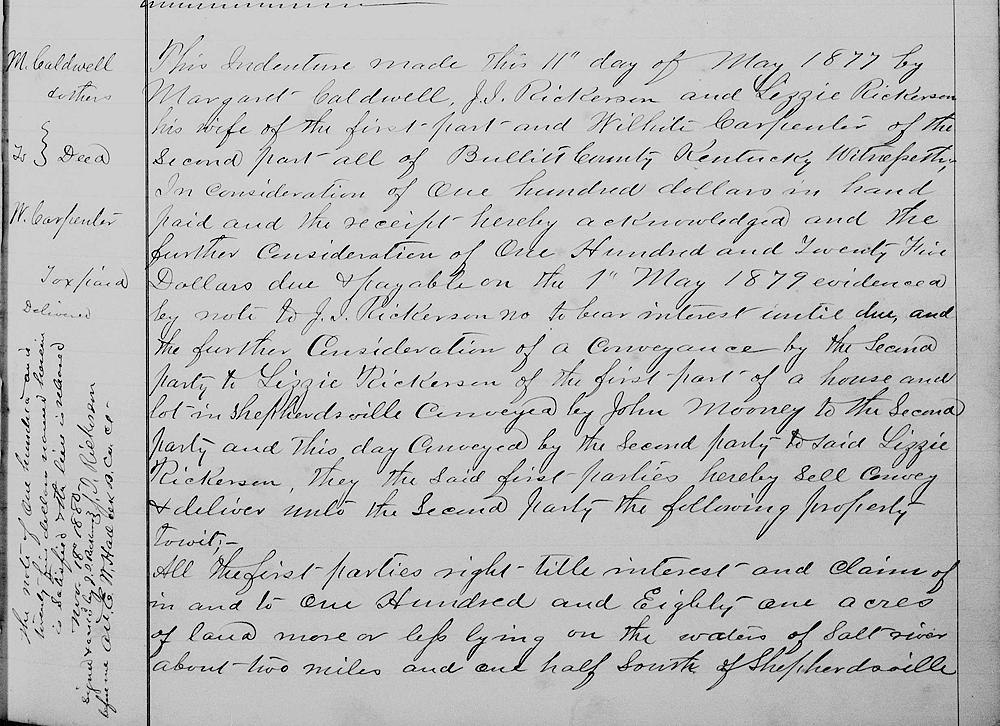 M. Caldwell
& others
To } Deed
W. Carpenter
Tax paid
Delivered
This Indenture made this 11" day of May 1877 by
Margaret Caldwell, J. I. Rickerson and Lizzie Rickerson
his wife of the first part and Wilhite Carpenter of the
Second part all of Bullitt County Kentucky Witnesseth,
In Consideration of One hundred dollars in hand
paid and the receipt hereby acknowledged and the
further Consideration of One Hundred and Twenty Five
Dollars due & payable on the 1" May 1879 evidenced
by note to J. I. Rickerson no to bear interest until due, and
the further Consideration of a Conveyance by the Second
party to Lizzie Rickerson of the first part of a house and
lot in Shepherdsville Conveyed by John Mooney to the Second
party and this day Conveyed by the Second party to said Lizzie
Rickerson, they the said first parties hereby Sell Convey
& deliver unto the Second Party the following property
towit;-
All the first parties right title interest and Claim of
in and to One Hundred and Eighty one acres
of land more or less lying on the waters of Salt river
about two miles and one half South of Shepherdsville
The note of One hundred and
twenty five dollars named herein
is Satisfied & the lien released
Nov. 18" 1880
Signed & ack'd by J. I. Rickerson
before me att.